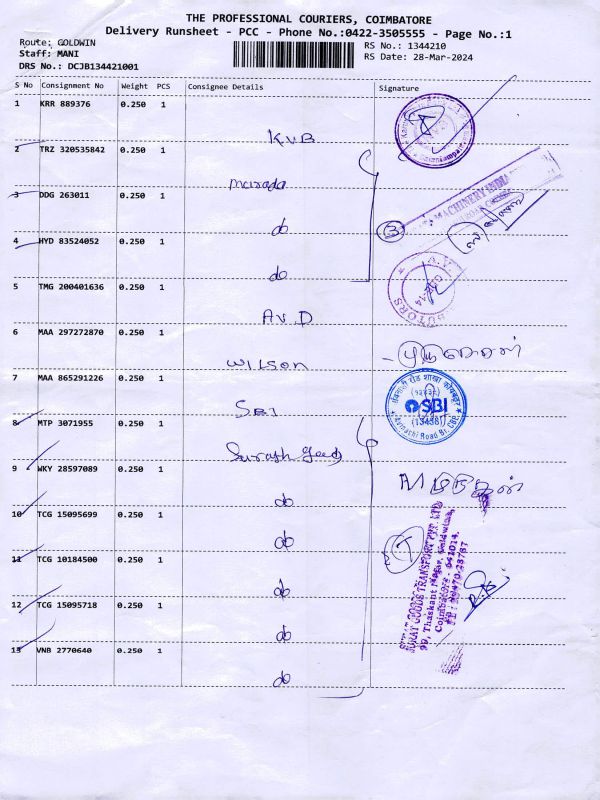 THE PROFESSIONAL COURIERS, COIMBATORE
Delivery Runsheet - PCC - Phone No.:0422-3505555 - Page No.:1
Route: GOLDWIN
Staff: MANI
DRS No.: DCJB134421001
RS No.: 1344210
RS Date: 28-Mar-2024
S No Consignment No Weight PCS Consignee Details Signature
1 KRR 889376 0.250 1
KVB
2 TRZ 320535842 0.250 1
3 DDG 263011 0.250 1
do
MACHINERY INDIA
3
4 HYD 83524052 0.250 1
do
5 TMG 200401636 0.250 1
AVD
6 MAA 297272870 0.250 1
WILSON
7 MAA 865291226 0.250 1
SBI
SBI
(13438)
Avinachi Road Br. CBE
8 MTP 3071955 0.250 1
9 WKY 28597089 0.250 1
do
10 TCG 15095699 0.250 1
do
11 TCG 10184500 0.250 1
do
12 TCG 15095718 0.250 1
do
13 VNB 2770640 0.250 1
do
7
SURAT GOODS TRANSPORT PVT. LTD.
99, Thaskant Nagar, Goldwins,
Coimbatore - 641014.